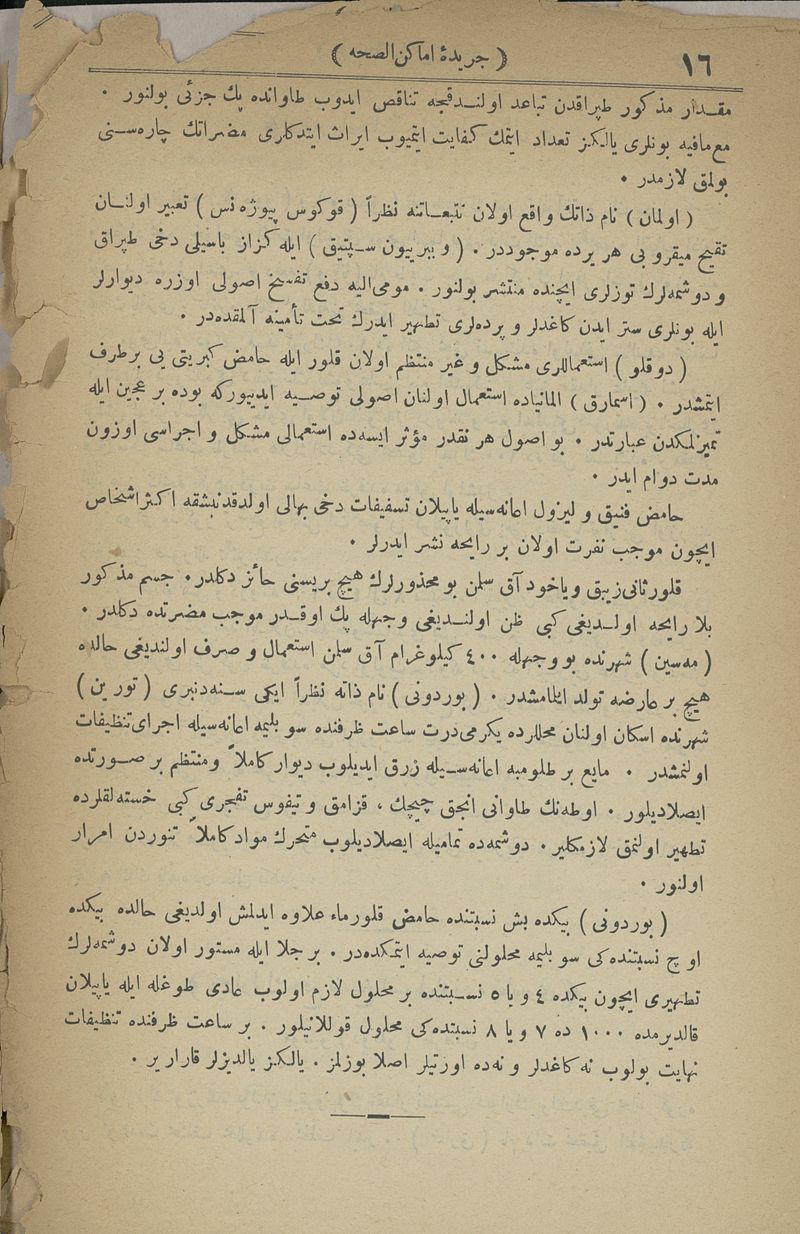 ١٦
( جريدهٔ اماكن الصحه )
مقدار مذكور طپراقدن تباعد اولندقجه تناقص ايدوب طاوانده پك جزئى بولنور ٠
مع مافيه بونلرى يالكز تعداد ايتمك كفايت ايتميوب ايراث ايتدكارى مضراتك چاره سنى
بولمق لازمدر ٠
( اولمان ) نام ذاتك واقع اولان تتبعاتنه نظراً ( قوكوس پيوژه نس ) تعبير اولنان
تقيح ميقروبى هر يرده موجوددر ٠ ( و ببريون سپتيق ) ايله كزاز باسيلى دخى طپراق
و دوشمه لرك توزلرى ايچنده منتشر بولنور ٠ مومى اليه دفع تفسخ اصولى اوزره ديوارلر
ايله بونلرى ستر ايدن كاغدلر و پرده لرى تطهير ايدرك تحت تأمينه آلمقده در ٠
( دوقلو ) استعماللرى مشكل و غير منتظم اولان قلور ايله حامض كبريتى يى بر طرف
ايتمشدر ٠ ( اسمارق ) المانياده استعمال اولنان اصولى توصيه ايدييوركه بوده بر عجين ايله
تميزلمكدن عبارتدر ٠ بو اصول هر نقدر مؤثر ايسه ده استعمالى مشكل و اجراسى اوزون
مدت دوام ايدر ٠
حامض فنيق و ليزول اعانه سيله ياپيلان تسفيفات دخى بهالى اولدقدنبشقه اكثر اشخاص
ايچون موجب نفرت اولان بر رايحه نشر ايدرلر ٠
قلور ثانى زيبق و ياخود آق سلمن بو محذورلرك هيچ بريسنى حائز دكلدر٠ جسم مذكور
بلا رايحه اولديغى كبى ظن اولنديغى وجهله پك اوقدر موجب مضرتده دكلدر ٠
( مه سين ) شهرنده بو وجهله ٤٠٠ كيلوغرام آق سلمن استعمال و صرف اولنديغى حالده
هيچ بر عارضه تولد ايلمامشدر ٠ ( بوردونى ) نام ذاته نظراً ايكى سنه دنبرى ( تورين )
شهرنده اسكان اولنان محللرده يكرمى درت ساعت ظرفنده سوبليمه اعانه سيله اجراى تنظيفات
اولنمشدر ٠ مايع بر طلومبه اعانه سيله زرق ايديلوب ديوار كاملاً و منتظم بر صورتده
ايصلاديلور ٠ اوطه نك طاوانى انجق چيچك ، قزامق و تيفوس تفجرى كبى خسته لقلرده
تطهير اولنمق لازمكلير٠ دوشمه ده تماميله ايصلاديلوب متحرك مواد كاملاً تنوردن امرار
اولنور ٠
( بوردونى ) بيكده بش نسبتنده حامض قلورماء علاوه ايدلمش اولديغى حالده بيكده
اوچ نسبتنده كى سوبليمه محلولنى توصيه ايتمكده در ٠ بر جلا ايله مستور اولان دوشمه لرك
تطهيرى ايچون بيكده ٤ و يا ٥ نسبتنده بر محلول لازم اولوب عادى طوغله ايله ياپيلان
قالديرمده ١٠٠٠ ده ٧ و يا ٨ نسبتده كى محلول قوللانيلور ٠ بر ساعت ظرفنده تنظيفات
نهايت بولوب نه كاغدلر و نه ده اورتيلر اصلا بوزلمز ٠ يالكز يالديزلر قارارير ٠